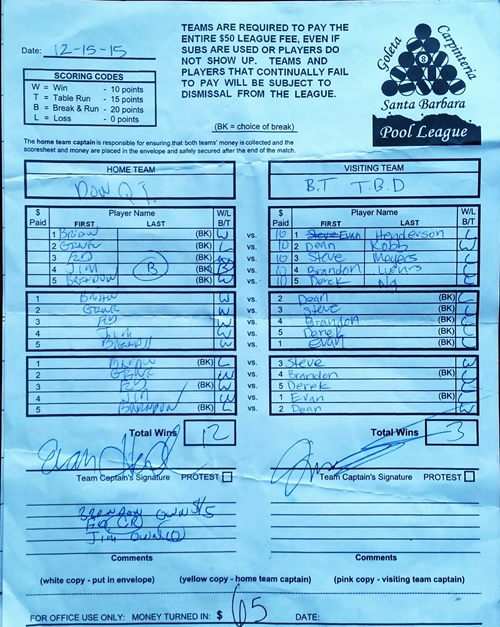 Date: 12-15-15
SCORING CODES
W = Win - 10 points
T = Table Run - 15 points
B = Break & Run - 20 points
L = Loss - 0 points
TEAMS ARE REQUIRED TO PAY THE
ENTIRE $50 LEAGUE FEE, EVEN IF
SUBS ARE USED OR PLAYERS DO
NOT SHOW UP. TEAMS AND
PLAYERS THAT CONTINUALLY FAIL
TO PAY WILL BE SUBJECT TO
DISMISSAL FROM THE LEAGUE.
(BK = choice of break)
Goleta Carpinteria
8
Santa Barbara
Pool League
The home team captain is responsible for ensuring that both teams' money is collected and the
scoresheet and money are placed in the envelope and safely secured after the end of the match.
HOME TEAM VISITING TEAM
DON Q B.T T.B.D
$ Paid Player Name FIRST LAST W/L B/T $ Paid Player Name FIRST LAST W/L B/T
1 BRIAN (BK) W vs. 10 1 Evan Henderson L
2 GENE (BK) L vs. 10 2 Dean Robb W
3 ED (BK) W vs. 10 3 Steve Meyers L
4 JIM B (BK) B vs. 10 4 Brandon L
5 BRANDON (BK) W vs. 10 5 Derek Ng L
1 BRIAN W vs. 2 Dean (BK) L
2 GENE W vs. 3 Steve (BK) L
3 ED W vs. 4 Brandon (BK) L
4 JIM W vs. 5 Derek (BK) L
5 W vs. 1 Evan (BK) L
1 BRIAN (BK) L vs. 3 Steve W
2 GENE (BK) W vs. 4 Brandon L
3 ED (BK) W vs. 5 Derek L
4 JIM (BK) W vs. 1 Evan L
5 BRANDON (BK) L vs. 2 Dean W
Total Wins 12 Total Wins 3
Team Captain's Signature PROTEST Team Captain's Signature PROTEST
BRANDON OWES $5
JIM
Comments Comments
(white copy - put in envelope) (yellow copy - home team captain) (pink copy - visiting team captain)
FOR OFFICE USE ONLY: MONEY TURNED IN: $ 65 DATE: